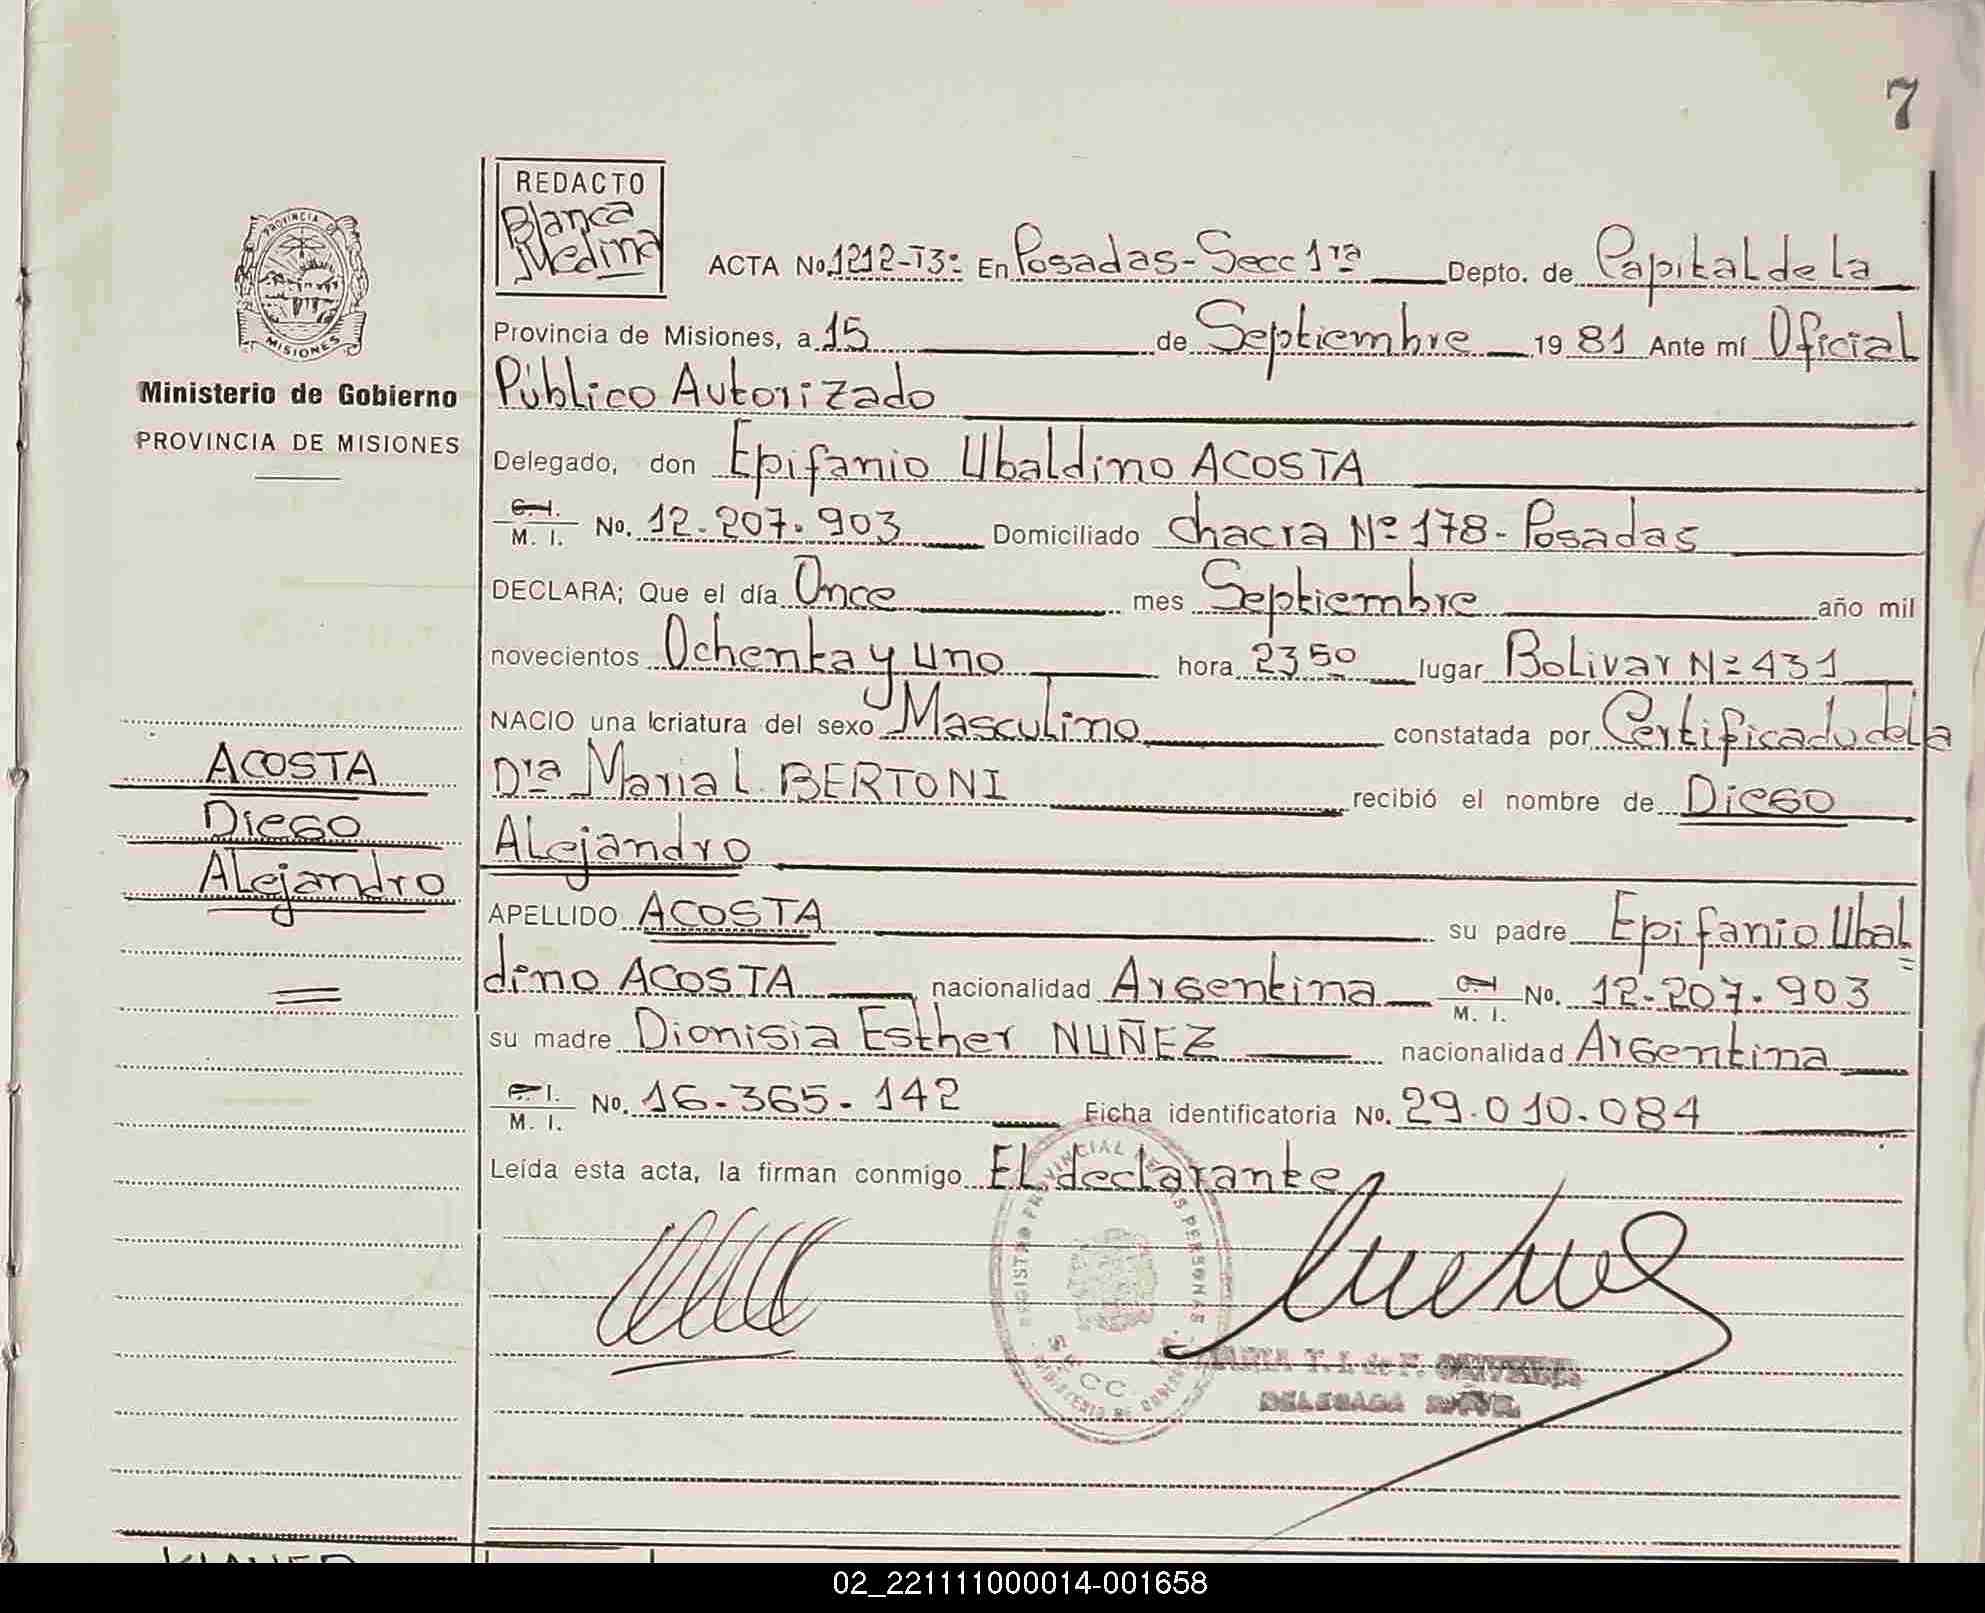 7
REDACTO
Blanca
Medina
PROVINCIA DE
MISIONES
Ministerio de Gobierno
PROVINCIA DE MISIONES
ACTA No. 1212-T3º En Posadas - Secc 1ra Depto. de Capital de la
Provincia de Misiones, a 15 de Septiembre 19 81 Ante mí Oficial
Público Autorizado
Delegado, don Epifanio Ubaldino ACOSTA
C. I.
M. I. No. 12.207.903 Domiciliado Chacra Nº 178 - Posadas
DECLARA; Que el día Once mes Septiembre año mil
novecientos Ochenta y uno hora 23 50 lugar Bolivar Nº 431
NACIO una criatura del sexo Masculino constatada por Certificado de la
Dra Maria L. BERTONI recibió el nombre de Diego
Alejandro
APELLIDO ACOSTA su padre Epifanio Ubal
dino ACOSTA nacionalidad Argentina C. I.
M. I. No. 12.207.903
su madre Dionisia Esther NUÑEZ nacionalidad Argentina
C. I.
M. I. No. 16.365.142 Ficha identificatoria No. 29.010.084
Leída esta acta, la firman conmigo El declarante
ACOSTA
Diego
Alejandro
REGISTRO PROVINCIAL DE LAS PERSONAS
SECC.
MINISTERIO DE GOBIERNO
MARIA T. I. de F.
DELEGADA
02_221111000014-001658